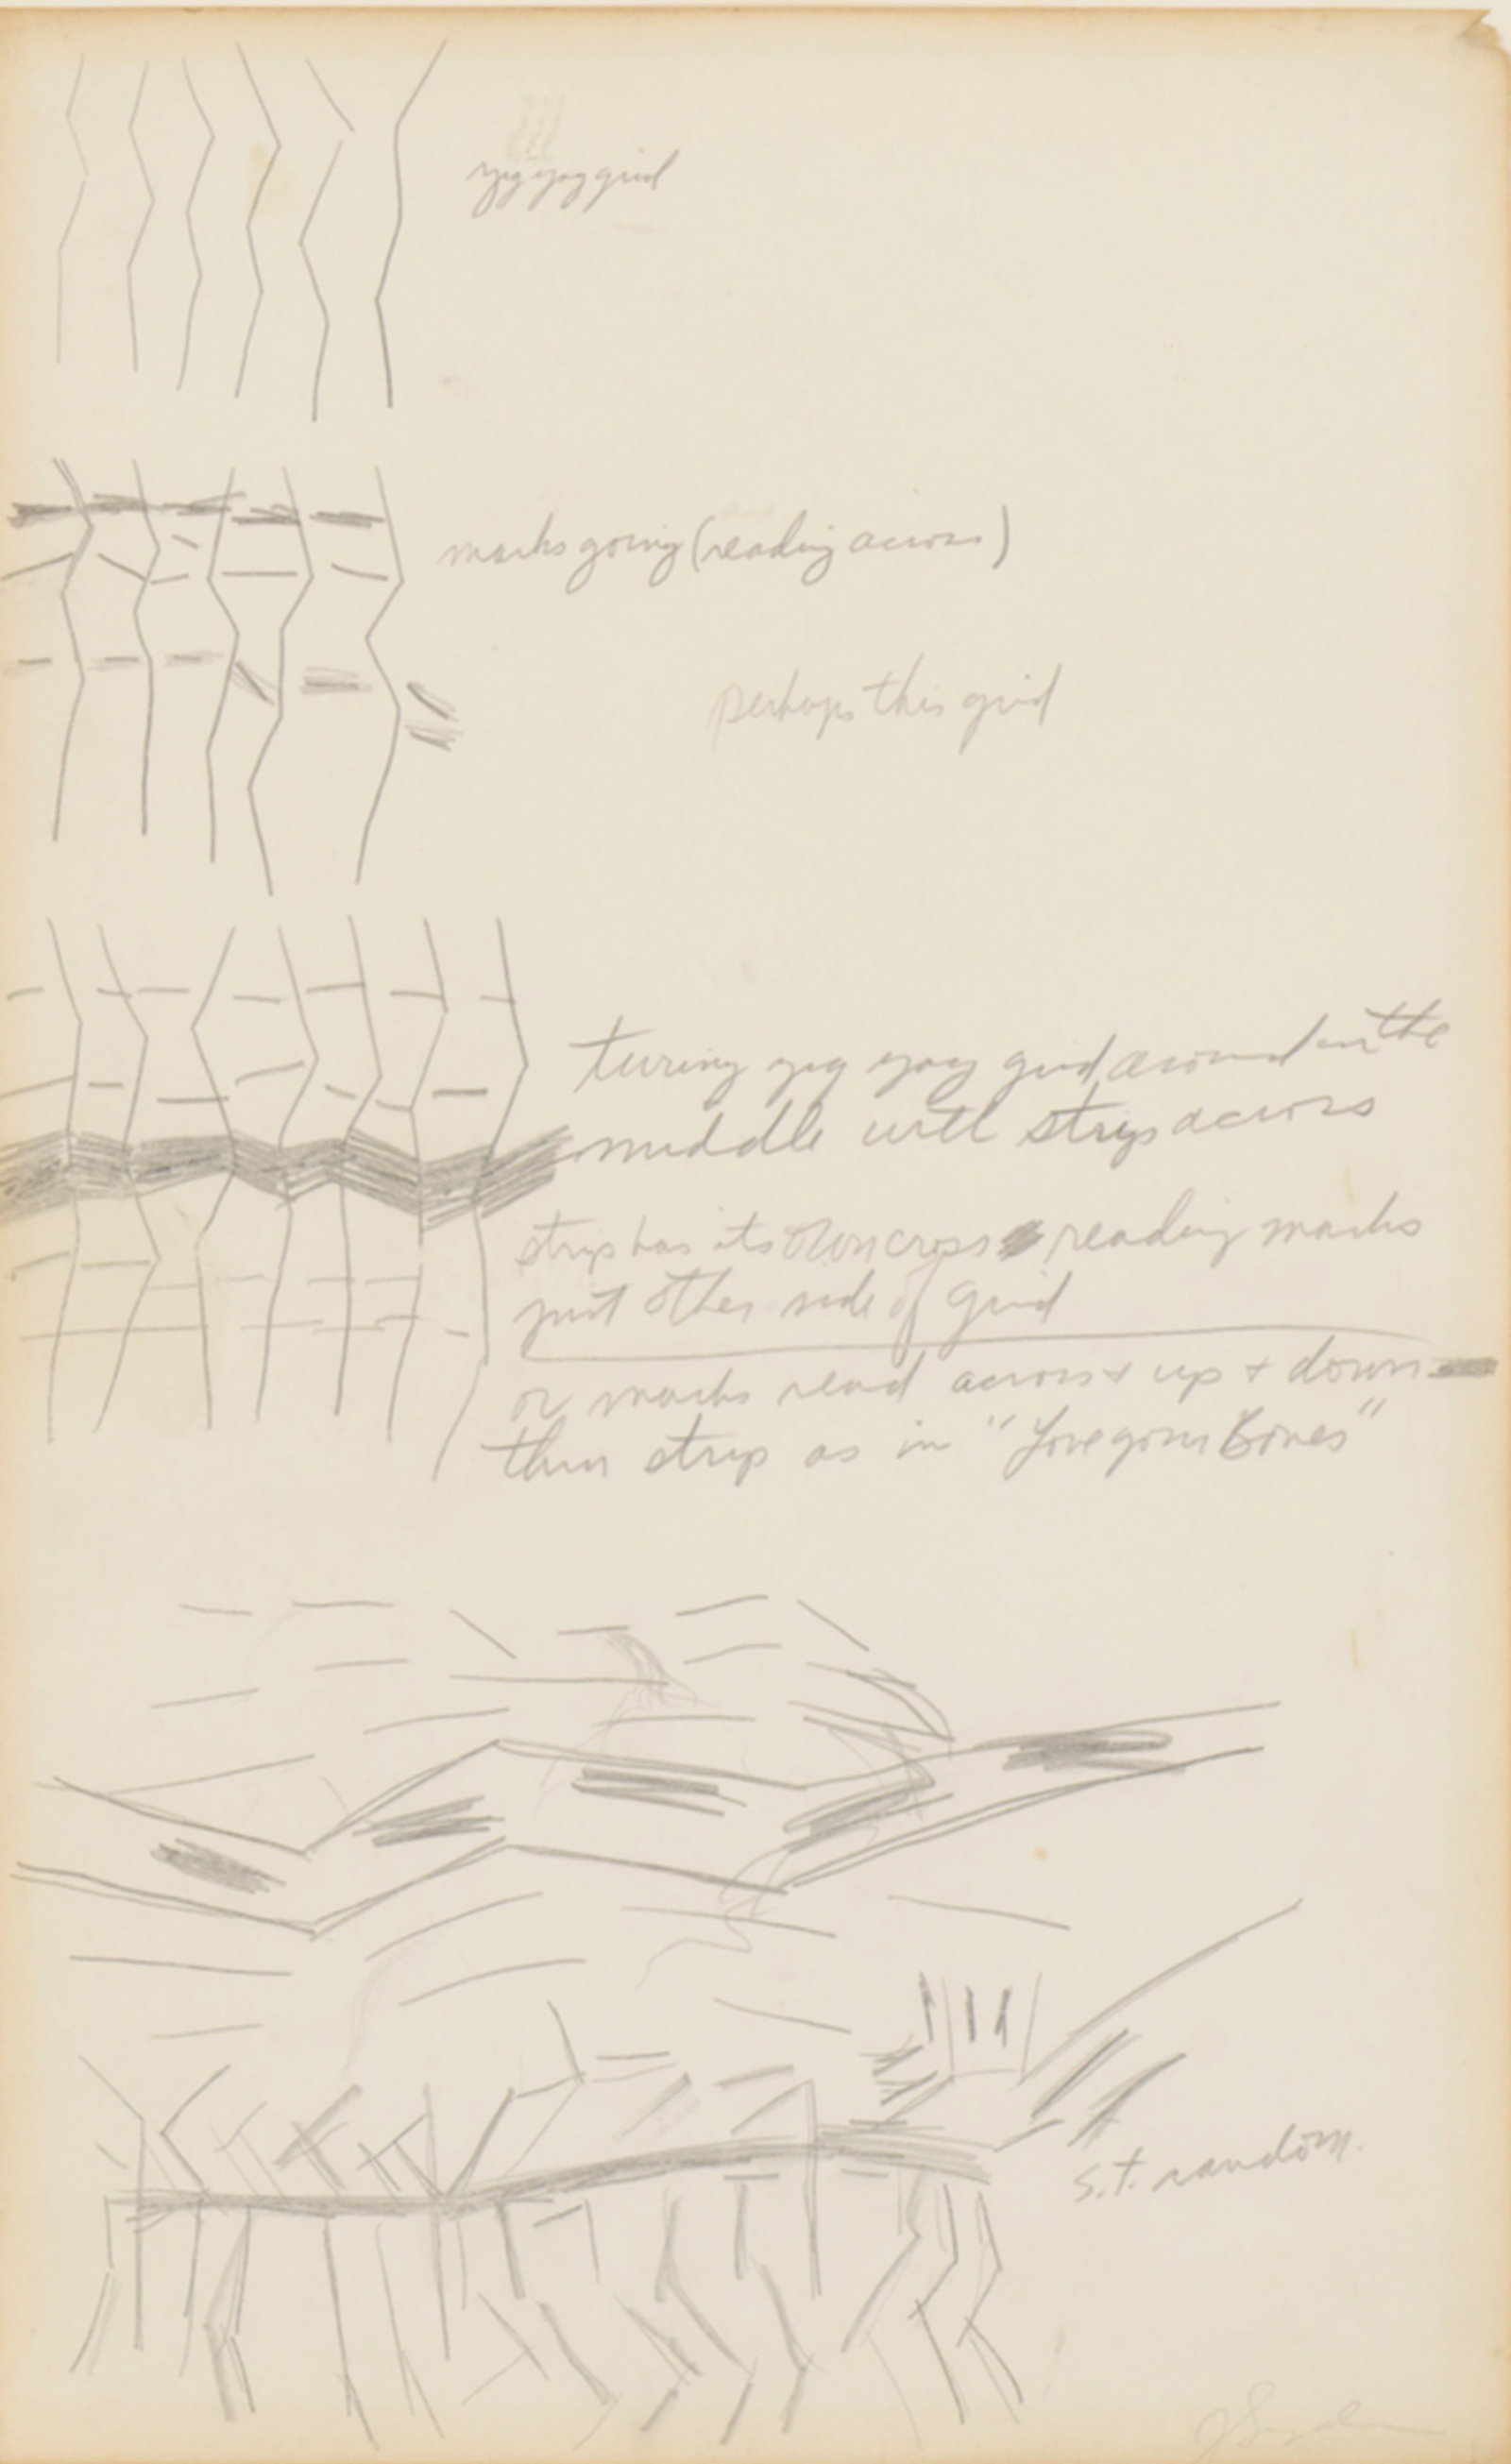 zig zag grid
marks going (reading across)
perhaps this grid
turing zig zag grid around in the
middle with strips across
strip has its own cross reading marks
just other side of grid
or marks read across + up + down
thin strip as in "Love your Bones"
s.t. random.
J Snyder